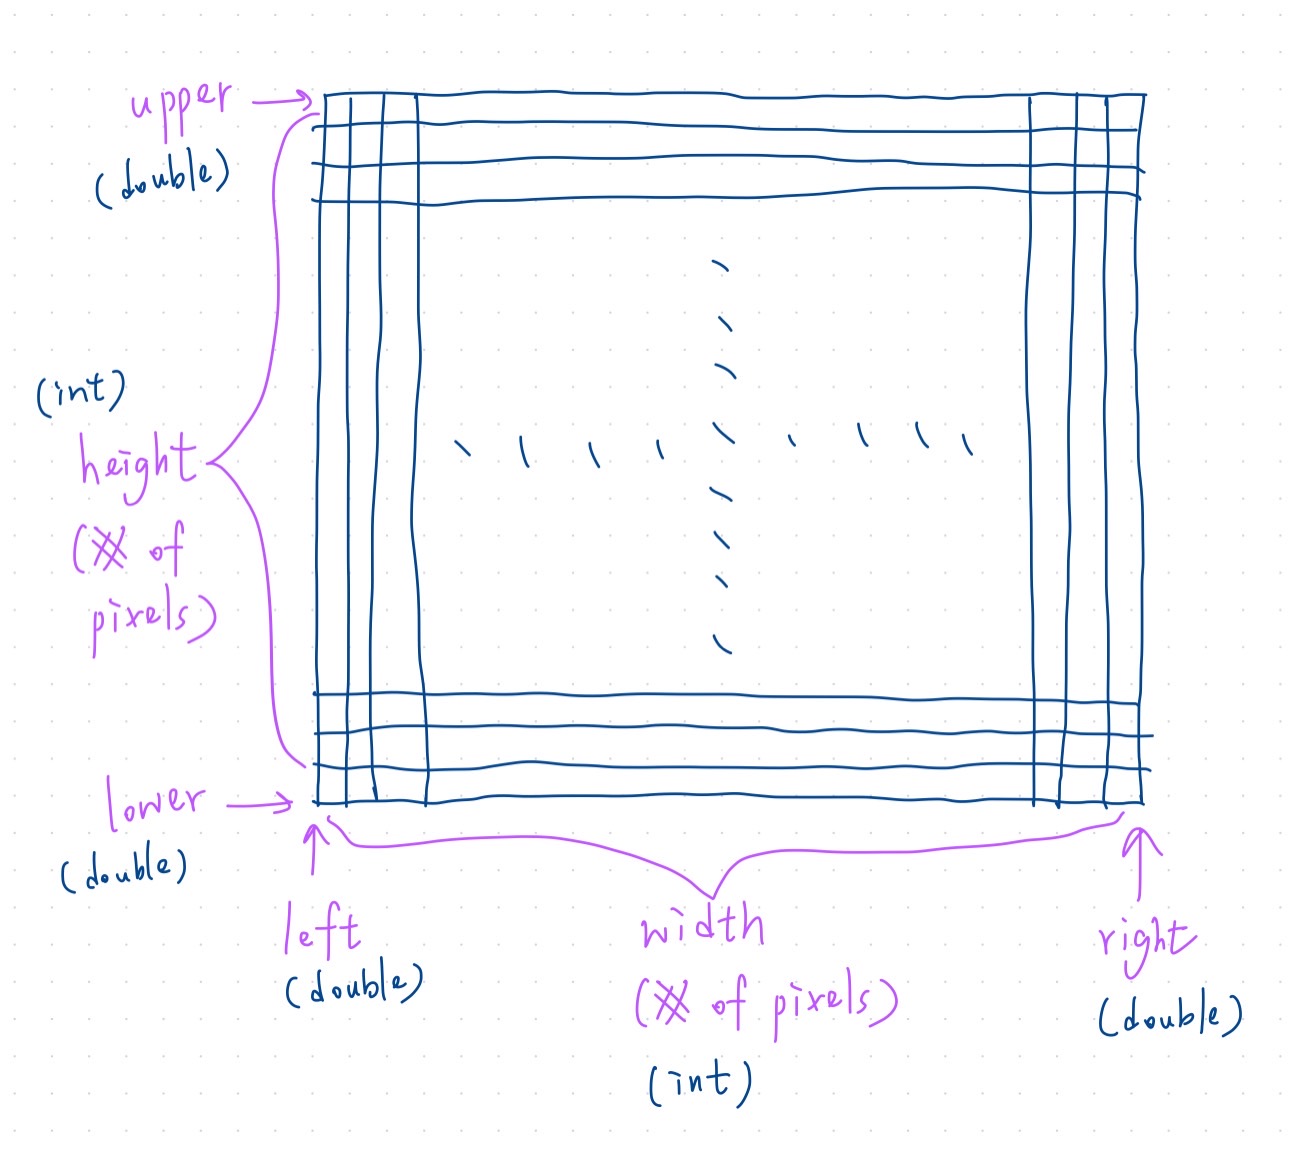 upper
(double)
(int)
height
(# of
pixels)
lower
(double)
left
(double)
width
(# of pixels)
(int)
right
(double)